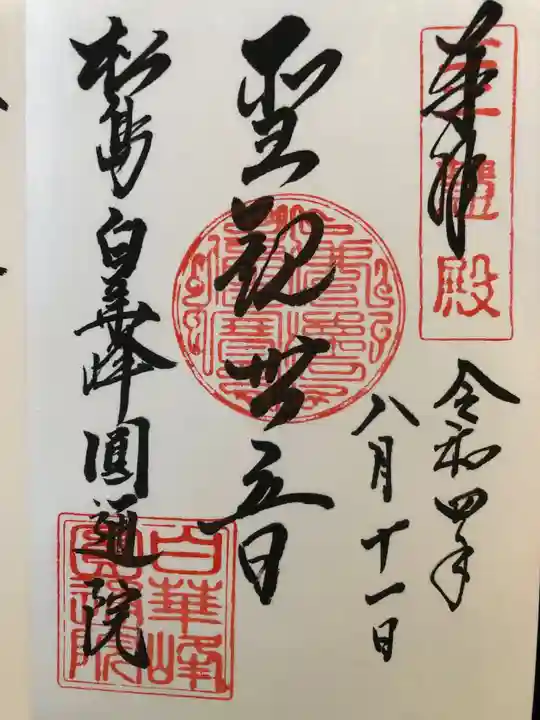 奉拝
三慧殿
令和四年
八月十一日
聖観世音
松島白華峰圓通院
白華峰
圓通院